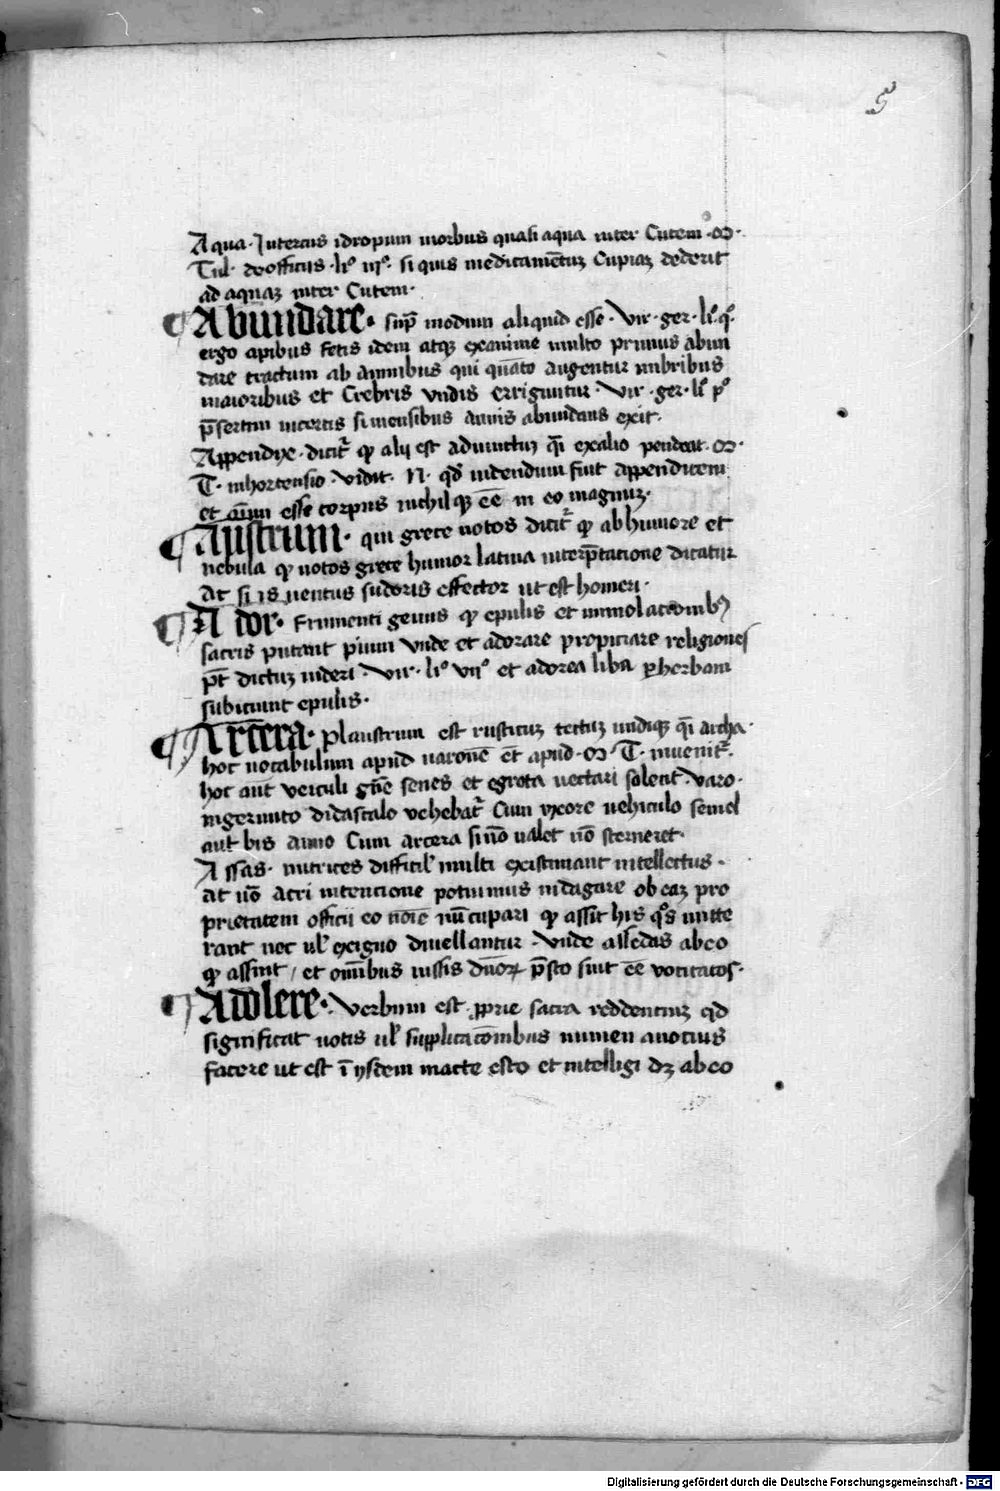 5
Aqua · Intercus idropum morbus quasi aqua inter Cutem · M ·
Tul · de officiis · liº iijº · si quis medicamētuʒ Cupiaʒ dederit
ad aquaʒ inter Cutem ·
¶ Abundare · sup̄ modum aliquid esse · Vir · ger · liº qº ·
ergo apibus fetis idem atqʒ examine multo primus abun
dare tractum ab amnibus qui quāto augentur imbribus
maioribus et Crebris vndis erriguntur · Vir · ger · liº pº
p̄sertim incertis si mensibus amnis abundans exit ·
Appendixe · dicit᷑ qp alij est adiunctuʒ q̄i exalio pendeat · M ·
T · inhortensio · vidit · N · qd̄ videndum fuit appendicem
et aīmi esse corpus nichilqʒ ēē in eo magnuʒ ·
¶ Austrum · qui grece notos dicit᷑ qp ab humore et
nebula qp notos grece humor latina interp̄tacione dicatur
At si is uentus sudoris effector ut est homeri ·
¶ Ador · Frumenti genus qp epulis et immolacionibꝰ
sacris putant pium vnde et adorare propiciare religiones
p̄t dictuʒ uideri · Vir · liº viiº et adorea liba ꝑ herbam
subiciunt epulis ·
¶ Arcera · plaustrum est rusticuʒ tectuʒ undiqʒ q̄i archa ·
hoc uocabulum apud uaronē ēt apud · M · T · inuenit᷑ ·
hoc aūt veiculi gn̄e senes et egrota uectari solent · Varo ·
ingerunto didascalo vehebat᷑ Cum vxore uehiculo semel
aut bis anno Cum arcera si nō ualet nō sterneret ·
Assas · nutrices difficil᷑ multi existimant intellectus ·
At nō acri intencione potuimus indagare ob eaʒ pro
prietatem officij eo noīe nūcupari qp assit his qͦs nutte
rant nec ul᷑ exiguo diuellantur · Vnde assedas ab eo
qp assint / et oīnibus iussis dn̄oꝝ p̄sto sint ēē vocitatos ·
¶ Adolere · Verbum est ꝓprie sacra reddentiuʒ qd
significat uotis ul᷑ supplicacōnibus numen auctius
facere ut est ī ysdem macte esto et intelligi dʒ ab eo
Digitalisierung gefördert durch die Deutsche Forschungsgemeinschaft - DFG